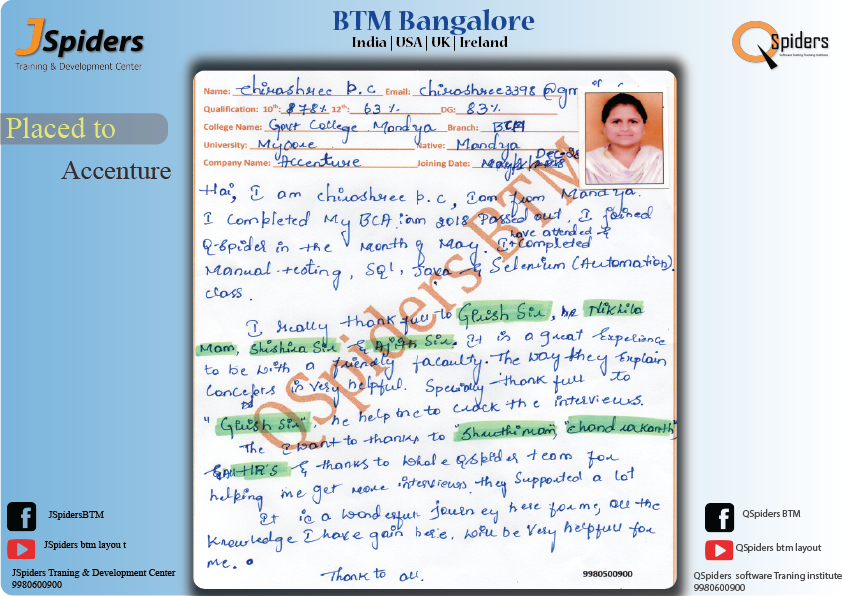 JSpiders
Training & Development Center
BTM Bangalore
India | USA | UK | Ireland
QSpiders
Software Testing Training Institute
Placed to
Accenture
Name: Chirashree p.c Email: chirashree3398@gm
Qualification: 10th: 878% 12th: 63% DG: 83%
College Name: Govt College Mandya Branch: BCA
University: Mysore Native: Mandya
Company Name: Accenture Joining Date: Dec-
Hai, I am chirashree p.c, I am from Mandya.
I completed My BCA. iam 2018 Passed out. I joined
Q-Spider in the month of May. I have attended & completed
Manual-testing, SQL, Java & Selenium (Automation)
class.
I really thank full to Girish Sir, Nikhila
Mam, Shishira Sir & Ajith Sir. It is a great Experience
to be with a friendly faculty. The way they Explain
Concepts is very helpful. Specially thank full to
"Girish Sir", he help me to crack the interviews.
The I want to thanks to "Shruthi mam", "chandrakanth"
& All HR's & thanks to whole Qspider team for
helping me get more interviews. they supported a lot
It is a wonderfull Journey here for me, all the
Knowledge I have gain here. will be very helpfull for
me.
Thank to all.
9980500900
QSpiders BTM
JSpidersBTM
JSpiders btm layou t
JSpiders Traning & Development Center
9980600900
QSpiders BTM
QSpiders btm layout
QSpiders software Traning institute
9980600900